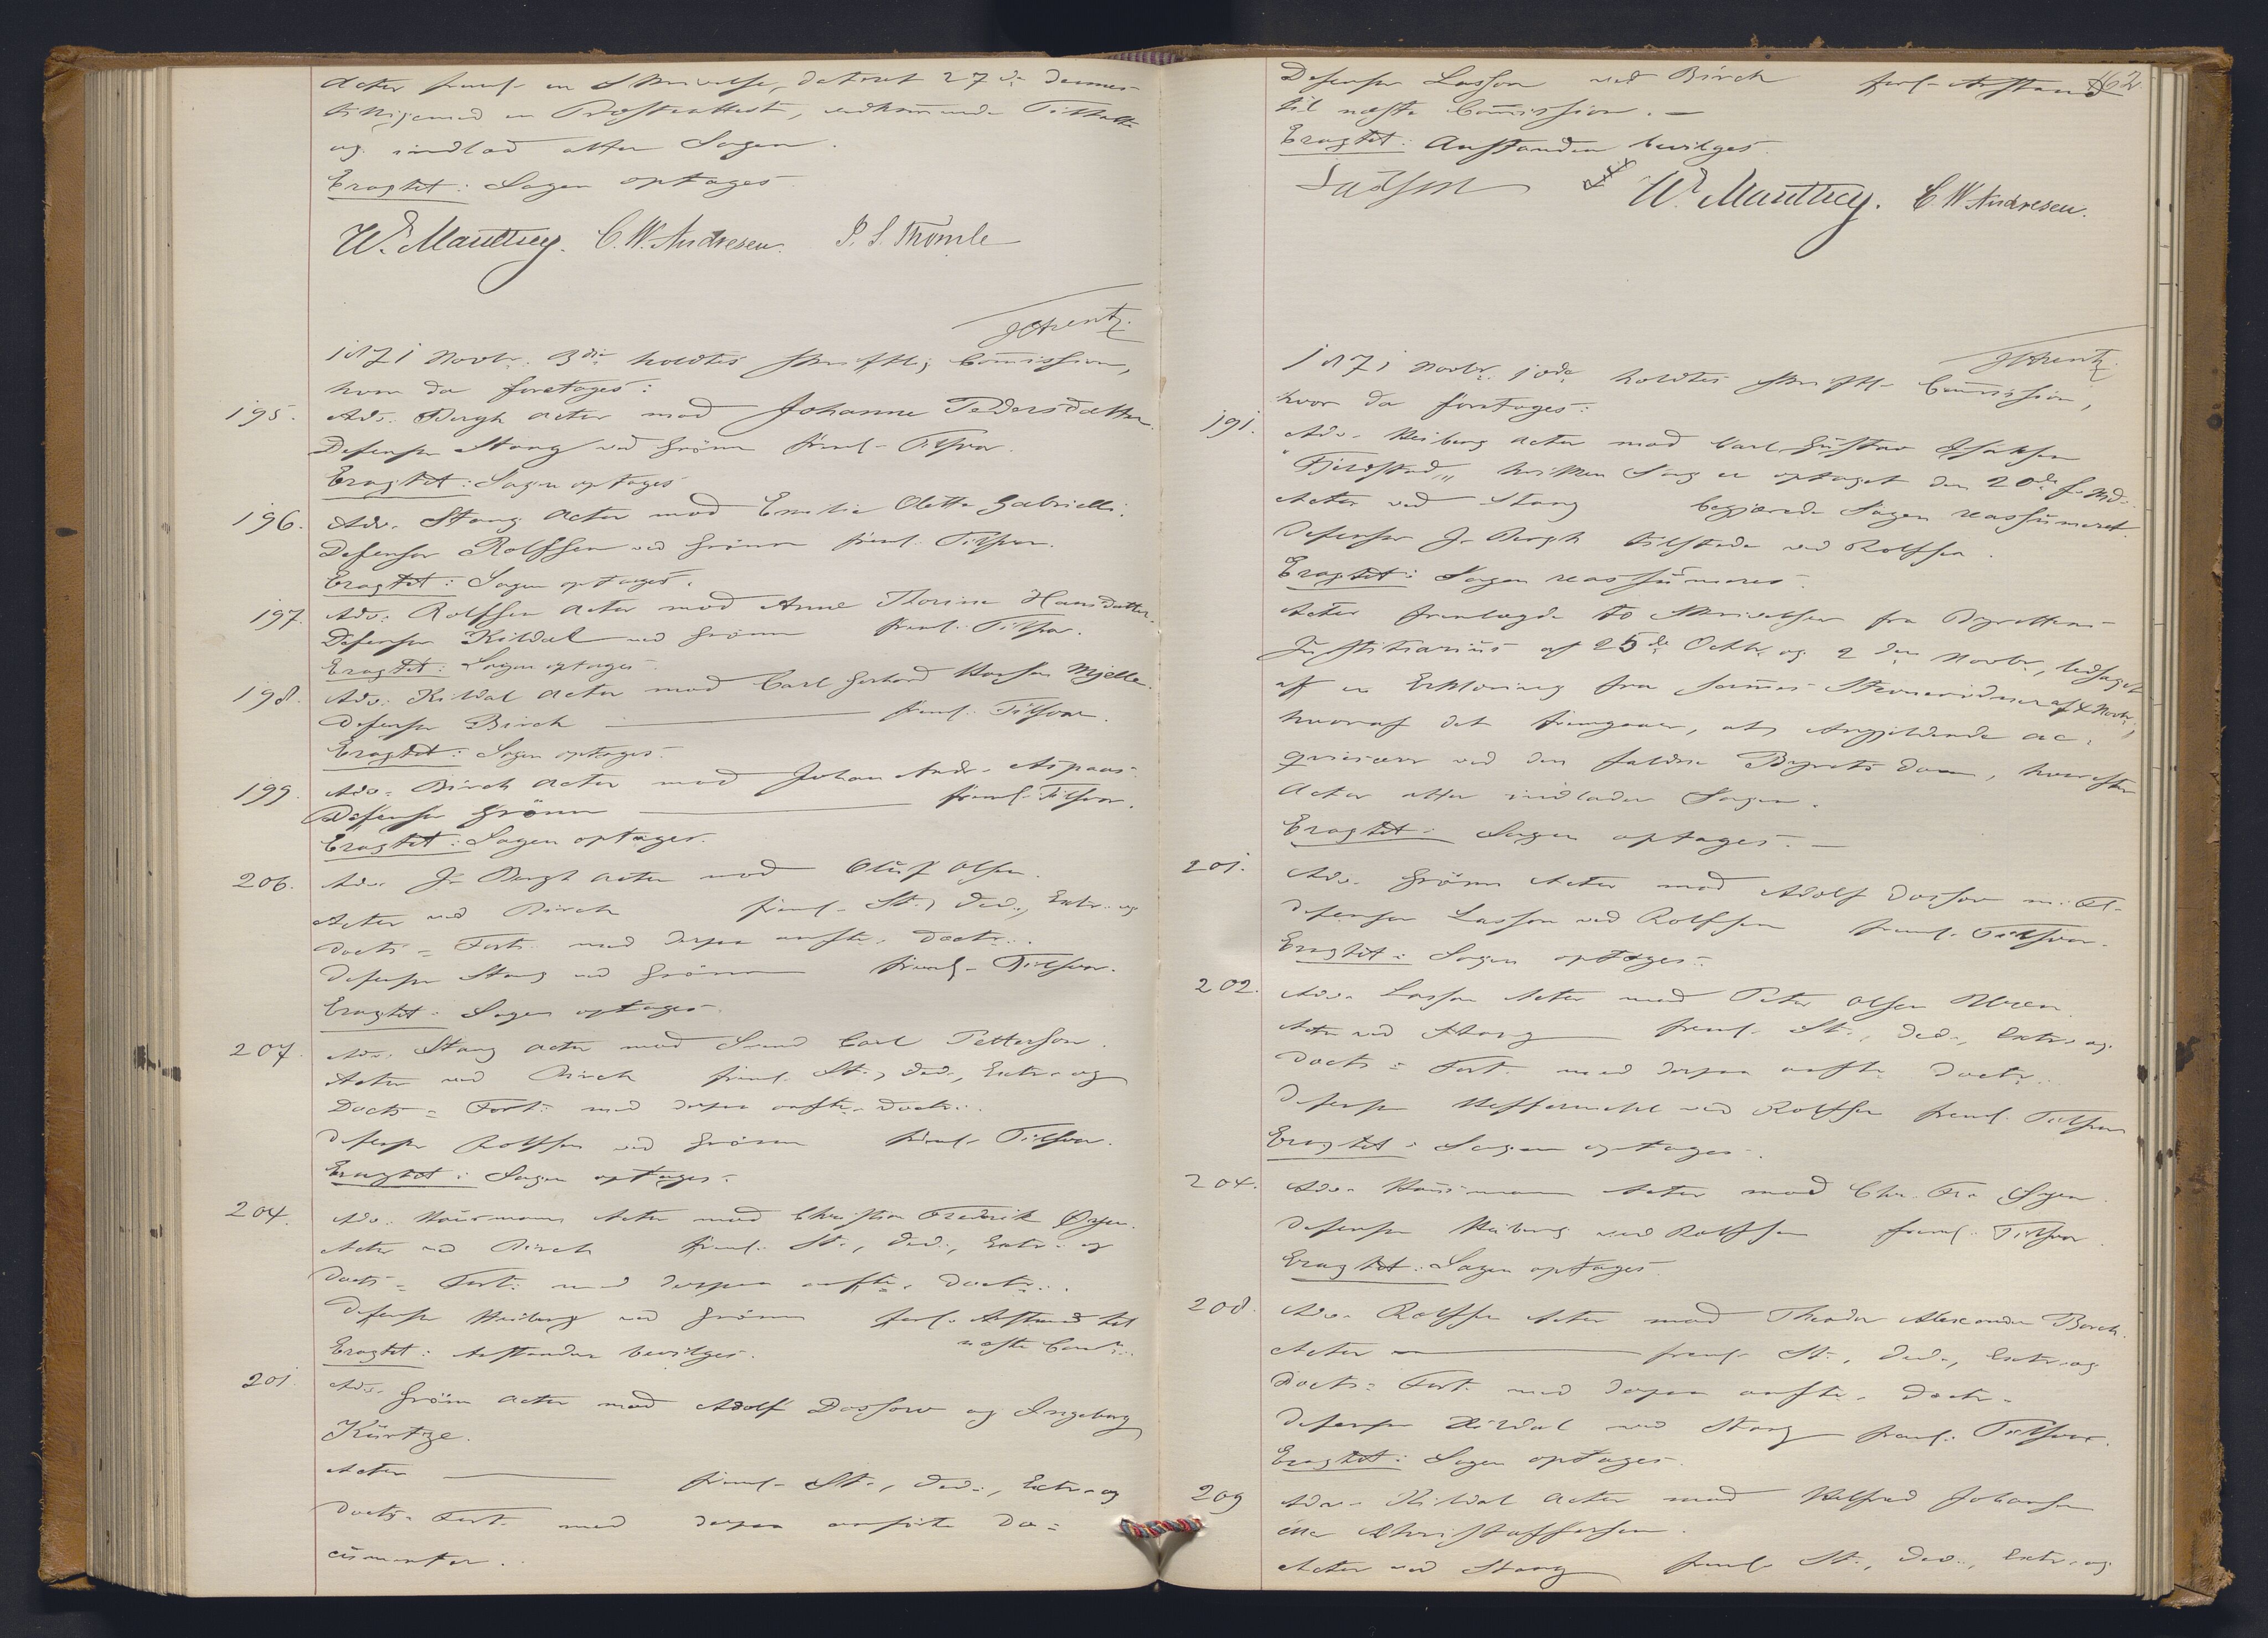 Actor freml. en Skrivelse, dateret 27de dennes
tilligemed en Præsteattest, vedkommende Tiltalte
og indlod atter Sagen.
Eragtet: Sagen optages.
W. Mauthey. C. W. Andresen. P. S. Thomle
1871 Novbr. 3die holdtes skriftlig Commission,
hvor da foretoges:
195. Adv. Bergh Actor mod Johanne Pedersdatter.
Defensor Stang ved Grönn freml. Tilsvar.
Eragtet: Sagen optages
196. Adv. Stang Actor mod Emilie Olette Gabrielli.
Defensor Rolfsen ved Grönn freml. Tilsvar.
Eragtet: Sagen optages.
197. Adv. Rolfsen Actor mod Anne Thorine Hansdatter.
Defensor Kildal ved Grönn freml. Tilsvar.
Eragtet: Sagen optages.
198. Adv. Kildal Actor mod Carl Gerhard Hansen Mjelle.
Defensor Birch freml. Tilsvar.
Eragtet: Sagen optages.
199. Adv. Birch Actor mod Johan Andr. Aspaas.
Defensor Grönn freml. Tilsvar.
Eragtet: Sagen optages.
206. Adv. J. Bergh Actor mod Oluf Olsen.
Actor ved Birch freml. St., Ded., Extr. og
Docts. Fort. med derpaa anfte. Doctr.
Defensor Stang ved Grönn freml. Tilsvar.
Eragtet: Sagen optages.
207. Adv. Stang Actor mod Svend Carl Petterson.
Actor ved Birch freml. St., Ded., Extr. og
Docts. Fort. med derpaa anfte. Doctr.
Defensor Rolfsen ved Grönn freml. Tilsvar.
Eragtet: Sagen optages.
204. Adv. Hausmann Actor mod Christian Fredrik
Actor ved Birch freml. St., Ded., Extr. og
Docts. Fort. med derpaa anfte. Doctr.
Defensor Heiberg ved Grönn forl. Anstand til
næste Com.
Eragtet: Anstanden bevilges.
201. Adv. Grönn Actor mod Adolf Dossow og Ingeborg
Kürtze.
Actor freml. St., Ded., Extr. og
Docts. Fort. med derpaa anförte Do=
cumenter.
162
Defensor Lasson ved Birch forl. Anstand
til næste Commission.
Eragtet: Anstanden bevilges.
W. Mauthey. C. W. Andresen.
1871 Novbr. 10de holdtes skriftl. Commission,
hvor da foretoges:
191. Adv. Heiberg Actor mod Carl Gustav Isaksen
"Fjeldstad", hvilken Sag er optaget den 20de f. Md.
Actor ved Stang begjærede Sagen reassumeret.
Defensor J. Bergh tilstede ved Rolfsen.
Eragtet: Sagen reassumeres.
Actor fremlagde to Skrivelser fra Byrettens
Justitiarius af 25de Octbr. og 2den Novbr., ledsaget
af en Erklæring fra samme Stævnevidner af 4 Novbr.,
hvoraf det fremgaaer, at Angjeldende ac=
quiescerer ved den faldne Byrets Dom, hvorefter
Actor atter indlader Sagen.
Eragtet: Sagen optages.
201. Adv. Grönn Actor mod Adolf Dossow m. Fl.
Defensor Lasson ved Rolfsen freml. Tilsvar.
Eragtet: Sagen optages.
202. Adv. Lasson Actor mod Peter Olsen
Actor ved Stang freml. St., Ded., Extr. og
Docts. Fort. med derpaa anfte. Doctr.
Defensor Heffermehl ved Rolfsen freml. Tilsvar
Eragtet: Sagen optages.
204. Adv. Hausmann Actor mod Chr. Fr.
Defensor Heiberg ved Rolfsen freml. Tilsvar.
Eragtet: Sagen optages.
208. Adv. Rolfsen Actor mod Theodor Alexander Borch.
Actor freml. St., Ded., Extr. og
Docts. Fort. med derpaa anfte. Doctr.
Defensor Kildal ved Stang freml. Tilsvar.
Eragtet: Sagen optages.
209 Adv. Kildal Actor mod Johansen
eller Christoffersen.
Actor ved Stang freml. St., Ded., Extr. og